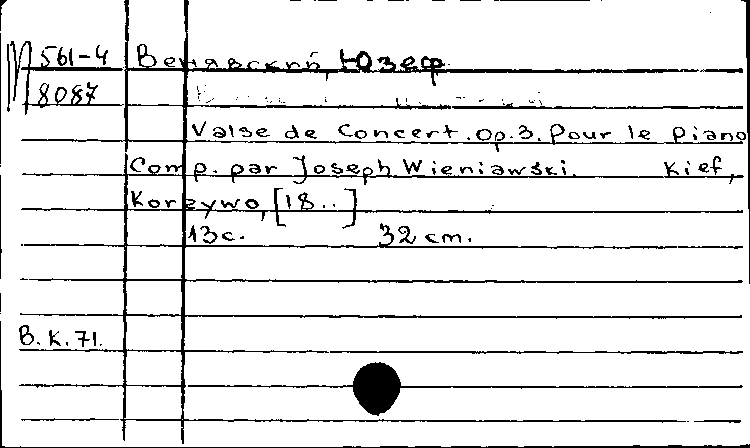 М 561-4 Венявский, Юзеф
8087
Valse de Concert. Op. 3. Pour le piano
Comp. par Joseph Wieniawski. Kief,
Korzywo, [18..]
13 с. 32 cm.
В. К. 71.